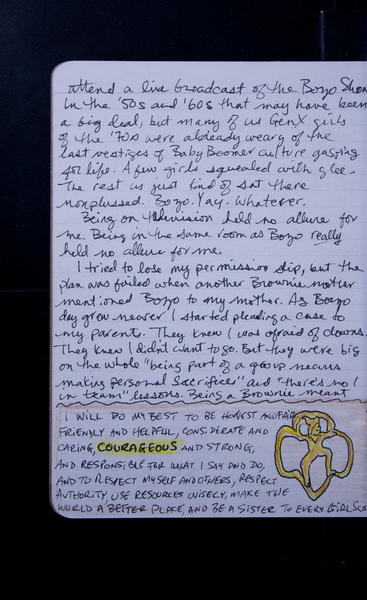 attend a live broadcast of the Bozo Show
In the '50s and '60s that may have been
a big deal, but many of us GenX girls
of the '70s were already weary of the
last vestiges of Baby Boomer culture gasping
for life. A few girls squealed with glee.
The rest us just kind of sat there
nonplussed. Bozo. Yay. Whatever.
Being on television held no allure for
me. Being in the same room as Bozo really
held no allure for me.
I tried to lose my permission slip, but the
plan was foiled when another Brownie mother
mentioned Bozo to my mother. As Bozo
day grew nearer I started pleading a case to
my parent. They knew I was afraid of clowns.
They knew I didn't want to go. But they were big
on the whole "being part of a group means
making personal sacrifices" and "there's no I
in team" lessons. Being a Brownie meant
I WILL DO MY BEST TO BE HONEST AND FAIR
FRIENDLY AND HELPFUL, CONSIDERATE AND
CARING, COURAGEOUS AND STRONG,
AND RESPONSIBLE FOR WHAT I SAY AND DO,
AND TO RESPECT MYSELF AND OTHERS, RESPECT
AUTHORITY, USE RESOURCES WISELY, MAKE THE
WORLD A BETTER PLACE, AND BE A SISTER TO EVERY GIRL SCO